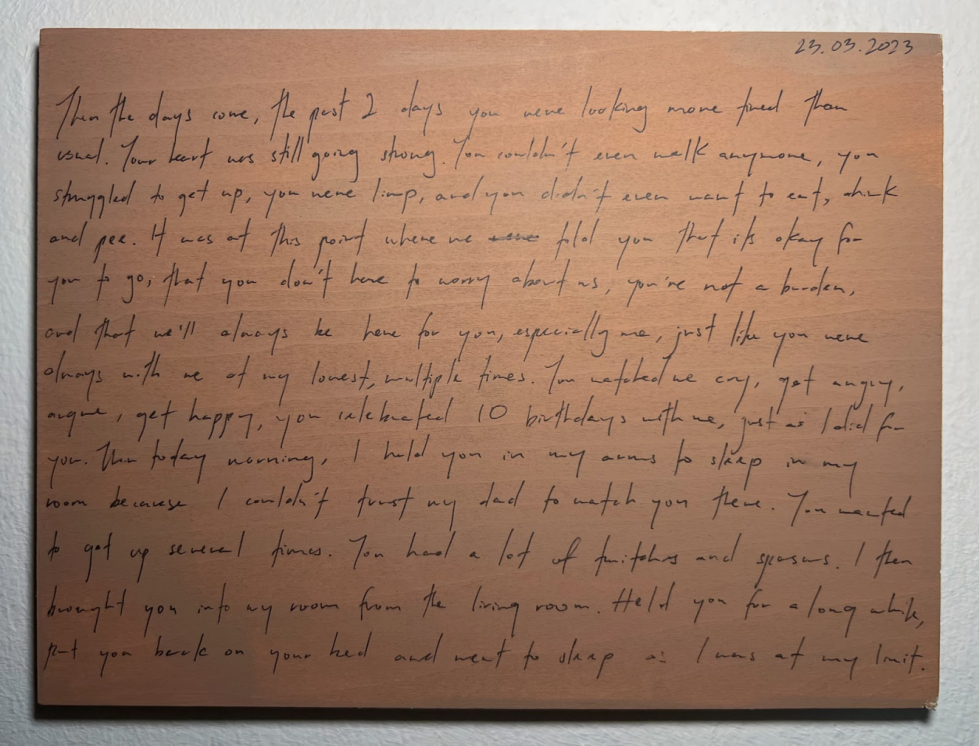 23.03.2023
Then the days come, the past 2 days you were looking more tired than
usual. Your heart was still going strong. You couldn't even walk anymore, you
struggled to get up, you were limp, and you didn't even want to eat, drink
and pee. It was at this point where we told you that its okay for
you to go; that you don't have to worry about us, you're not a burden,
and that we'll always be here for you, especially me, just like you were
always with me at my lowest, multiple times. You watched me cry, get angry,
argue, get happy, you celebrated 10 birthdays with me, just as I did for
you. Then today morning, I held you in my arms to sleep in my
room because I couldn't trust my dad to watch you there. You wanted
to get up several times. You had a lot of twitches and spasms. I then
brought you into my room from the living room. Held you for a long while,
put you back on your bed and went to sleep as I was at my limit.